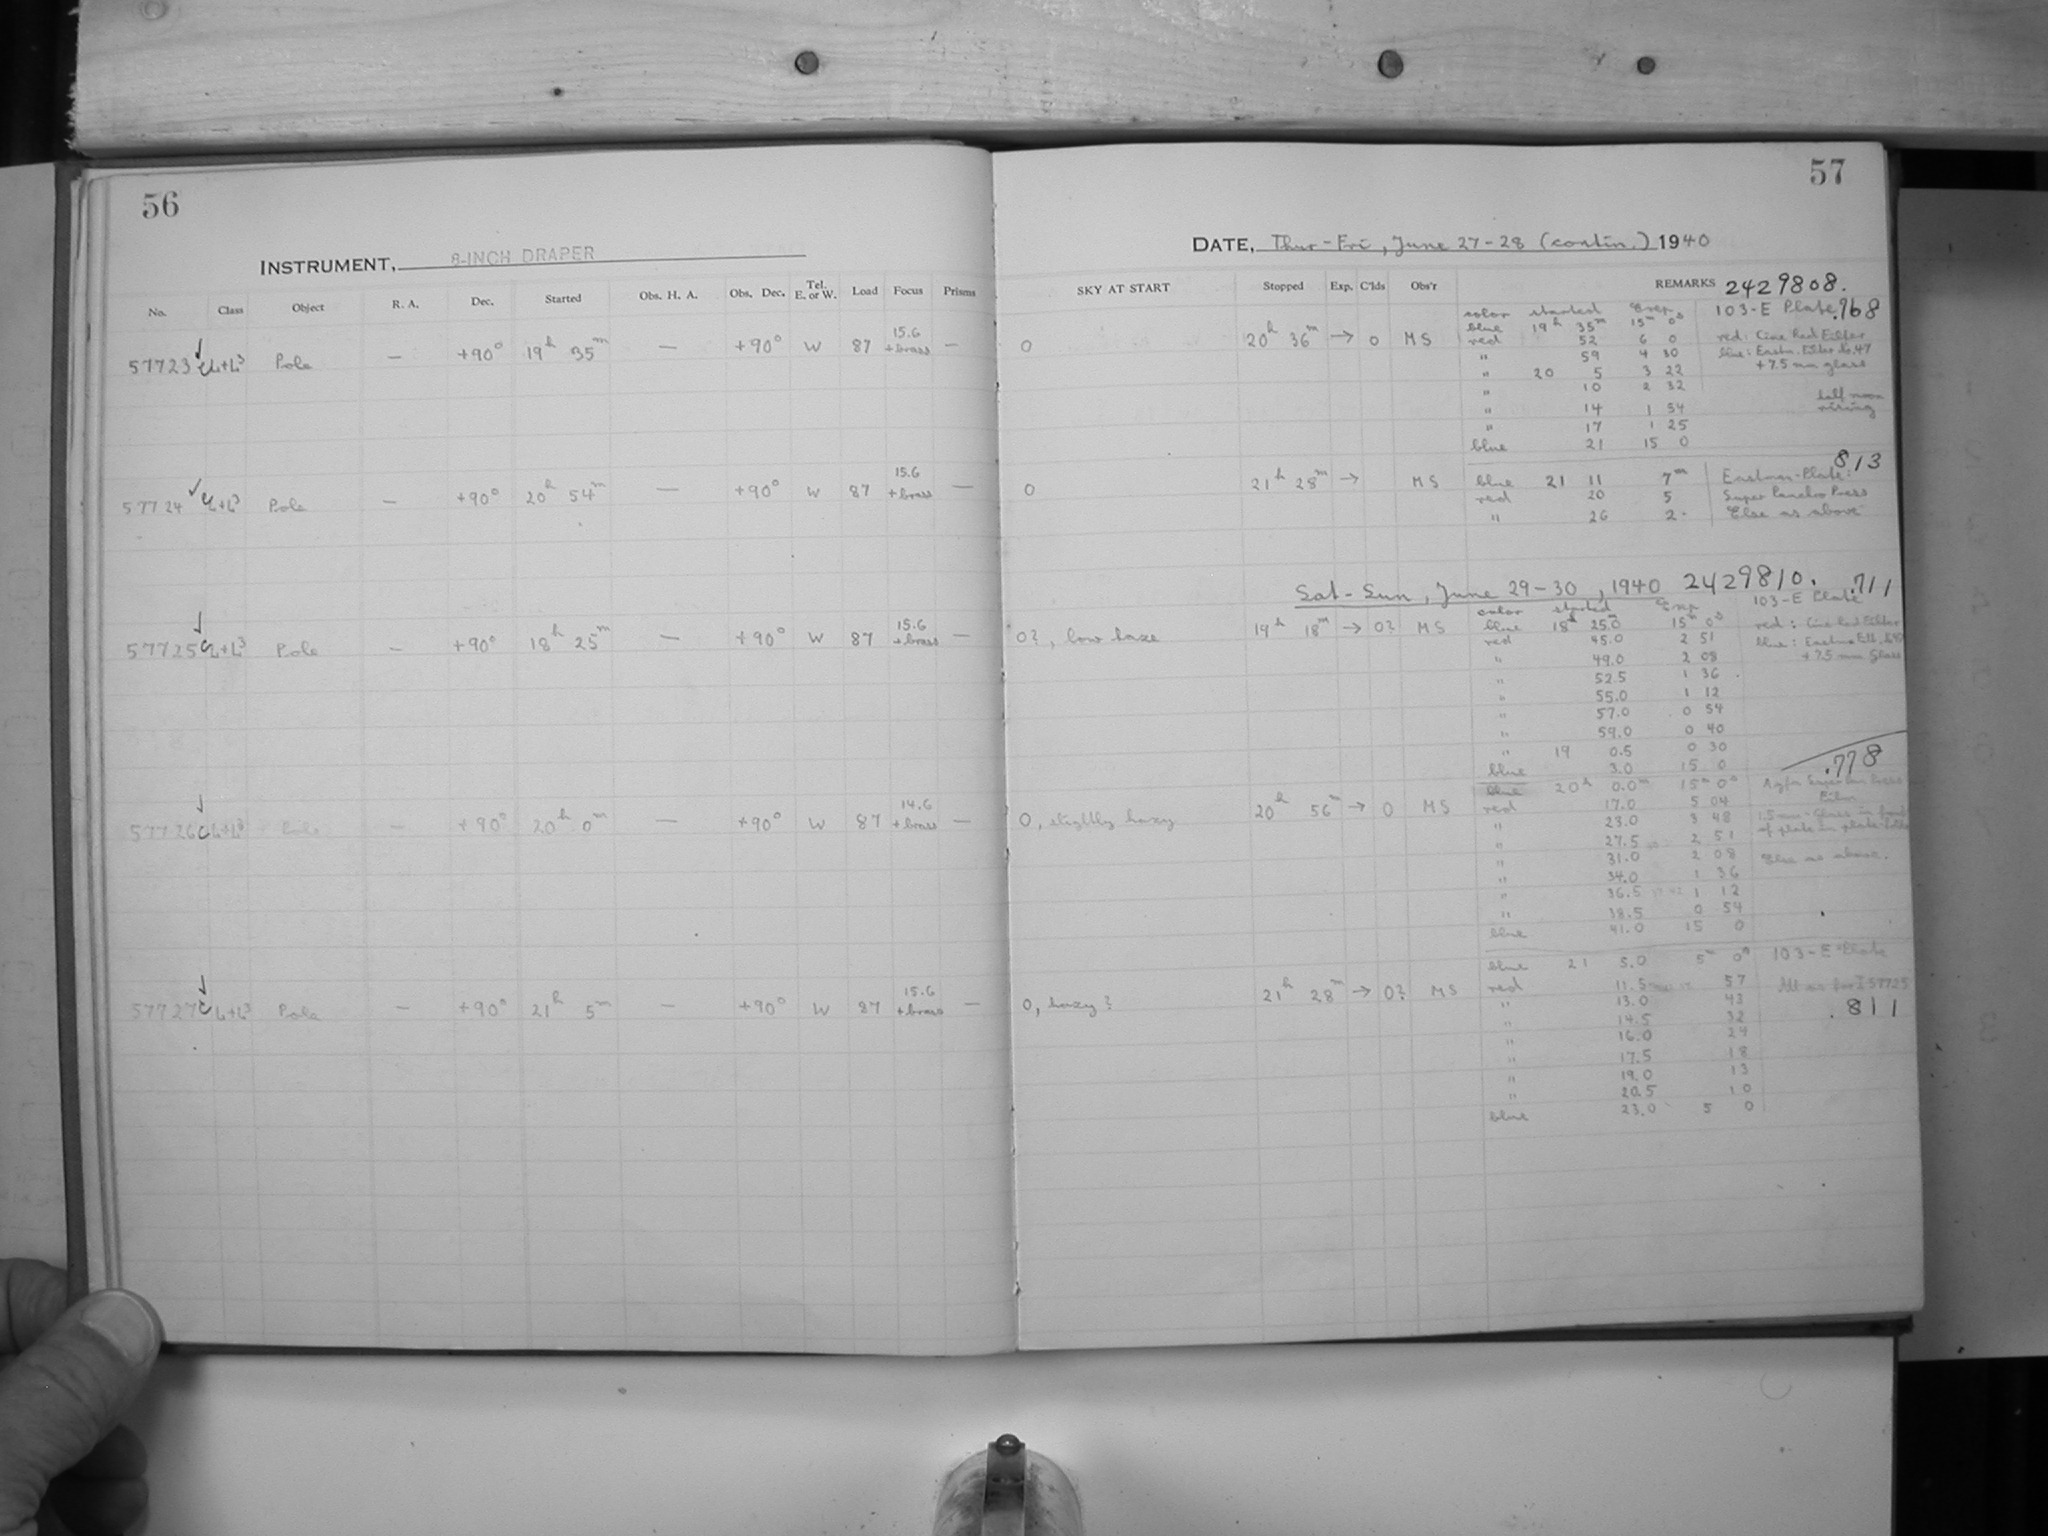 56
INSTRUMENT, 8-INCH DRAPER
No. Class Object R. A. Dec. Started Obs. H. A. Obs. Dec. Tel. E. or W. Load Focus Prisms
57723 Pole — +90° 19h 35m — +90° W 87 15.6 + brass —
57724 Pole — +90° 20h 54m — +90° W 87 15.6 + brass —
57725 Pole — +90° 18h 25m — +90° W 87 15.6 + brass —
57726 Pole — +90° 20h 0m — +90° W 87 14.6 + brass —
57727 Pole — +90° 21h 5m — +90° W 87 15.6 + brass —
57
DATE, Thur-Fri, June 27-28 (contin.) 1940
SKY AT START Stopped Exp. C'lds Obs'r REMARKS 2429808.
0 20h 36m → 0 MS
color started Exp
blue 19h 35m 15m 0s
red 52 6 0
" 59 4 30
" 20 5 3 22
" 10 2 32
" 14 1 54
" 17 1 25
blue 21 15 0
103-E Plate .768
red: Cine Red Filter
blue: Eastm. Filter No. 47
+ 7.5 mm glass
half moon
rising
0 21h 28m → MS
blue 21 11 7m
red 20 5
" 26 2
813
Eastman-Plate:
Super Panchro Press
Else as above
Sat-Sun, June 29-30, 1940 2429810. .711
0?, low haze 19h 18m → 0? MS
color started Exp
blue 18h 25.0 15m 0s
red 45.0 2 51
" 49.0 2 08
" 52.5 1 36
" 55.0 1 12
" 57.0 0 54
" 59.0 0 40
" 19 0.5 0 30
blue 3.0 15 0
103-E Plate
red: Cine Red Filter
blue: Eastm. Filt.
+ 7.5 mm Glass
0, slightly hazy 20h 56m → 0 MS
blue 20h 0.0m 15m 0s
red 17.0 5 04
" 23.0 3 48
" 27.5 2 51
" 31.0 2 08
" 34.0 1 36
" 36.5 1 12
" 38.5 0 54
blue 41.0 15 0
.778
Agfa Press
Film
1.5 mm-Glass in front
of plate in plate-
Else as above.
0, hazy? 21h 28m → 0? MS
blue 21 5.0 5m 0s
red 11.5 57
" 13.0 43
" 14.5 32
" 16.0 24
" 17.5 18
" 19.0 13
" 20.5 10
blue 23.0 5 0
103-E Plate
All as for I 57725
.811